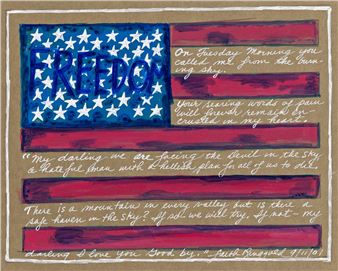 FREEDOM
On Tuesday Morning you
called me from the burn-
ing sky.
Your searing words of pain
will forever remain en-
crusted in my heart.
"My darling we are facing the Devil in the sky
a hateful man with a hellish plan for all of us to die.
There is a mountain in every valley but is there a
safe haven in the sky? If so we will try. If not - my
darling I love you Good by." Faith Ringgold 9/11/01